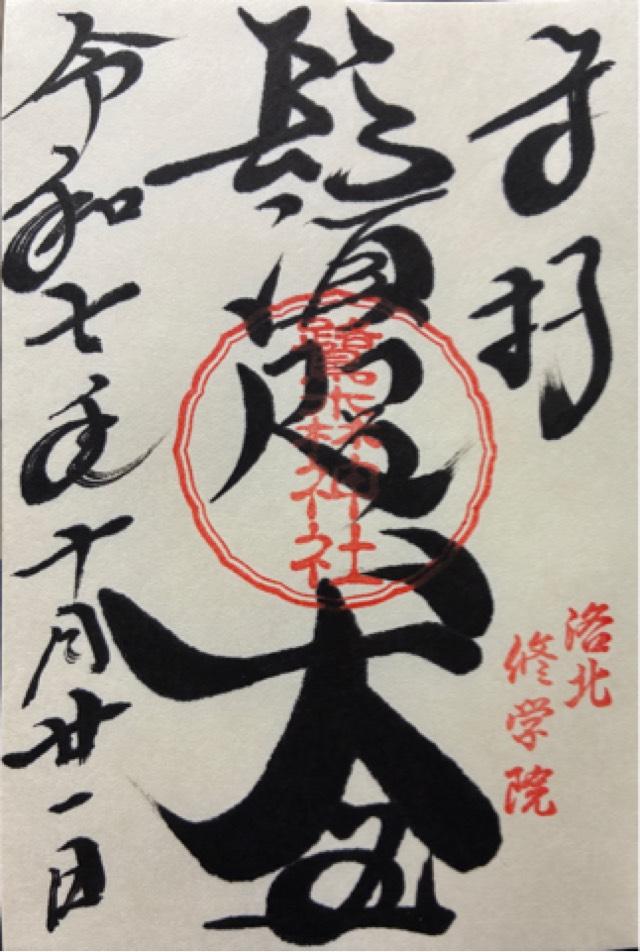 奉拝
洛北
修学院
鬚咫天王
鷺森神社
令和七年十月廿一日